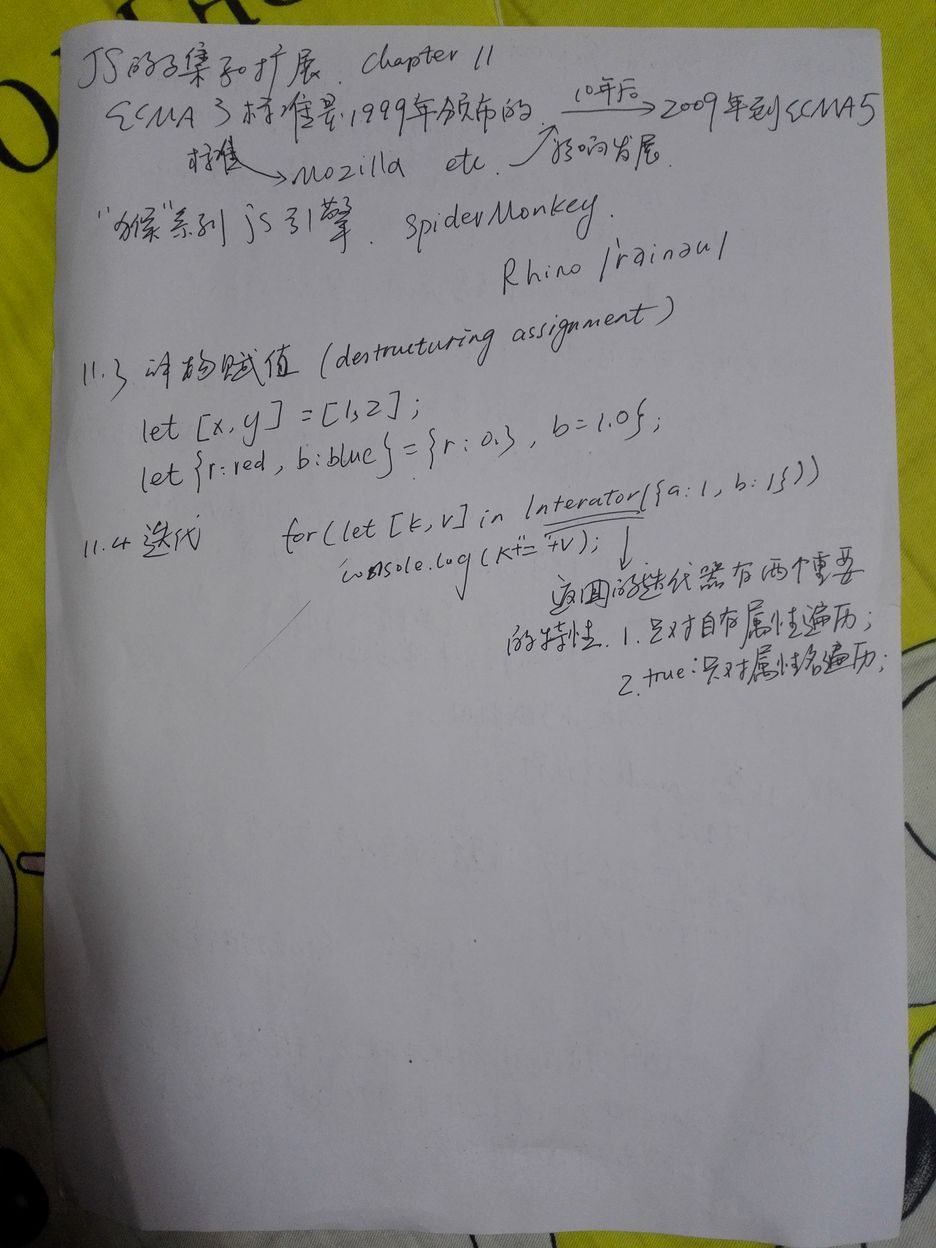 JS的子集和扩展. chapter 11
ECMA 3 标准是1999年颁布的. 10年后 2009年到ECMA5
标准 Mozilla etc. 影响发展.
系列 js 引擎. SpiderMonkey.
Rhino /'rainəu/
11.3 赋值 (destructuring assignment)
let [x,y] = [1,2];
let {r:red, b:blue} = {r:0.3, b=1.0};
11.4 迭代 for(let [k,v] in Interator({a:1, b:1}))
console.log(k+"="+v);
返回的迭代器有两个重要
的特性. 1.只对自有属性遍历;
2.true:只对属性名遍历;